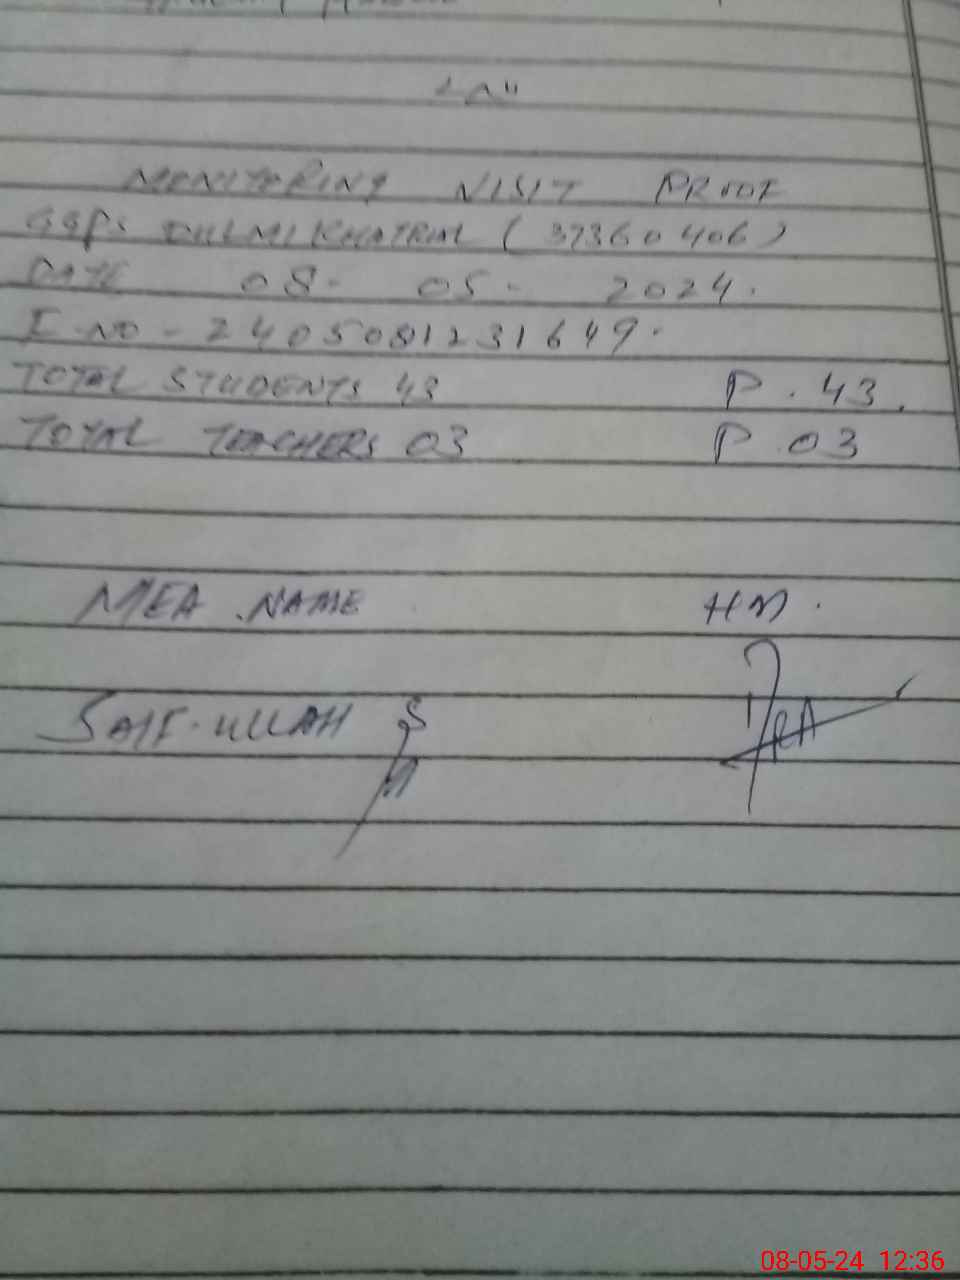 MONITORING VISIT PROOF
GGPS DHLMI KHATRIAL (37360406)
DATE 08-05-2024.
I-NO-2405081231649.
TOTAL STUDENTS 43 P.43.
TOTAL TEACHERS 03 P.03
MEA.NAME HM.
SAIF-ULLAH
08-05-24 12:36